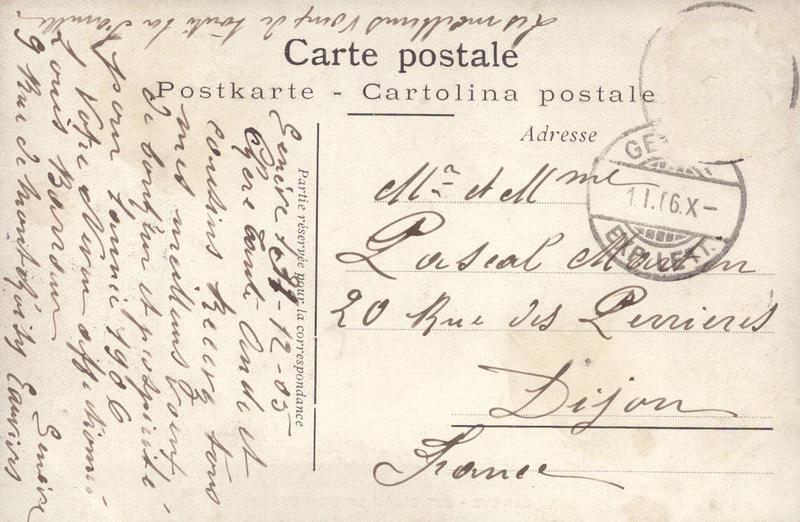 Les meilleurs voeux de toute la famille
Carte postale
Postkarte - Cartolina postale
Adresse
Partie réservée pour la correspondance
1.I.06.X-
EXP. LETT.
Mr et Mme
Pascal
20 Rue des Perrieres
Dijon
France
Genève 31-12-05
Chère tante Oncle et
cousins Recevez tous
mes meilleurs voeux
de bonheur et prospérité
pour l'année 1906
Votre Neveu affectionné
Louis
9 Rue de Montchoisy Eauxvives
Genève